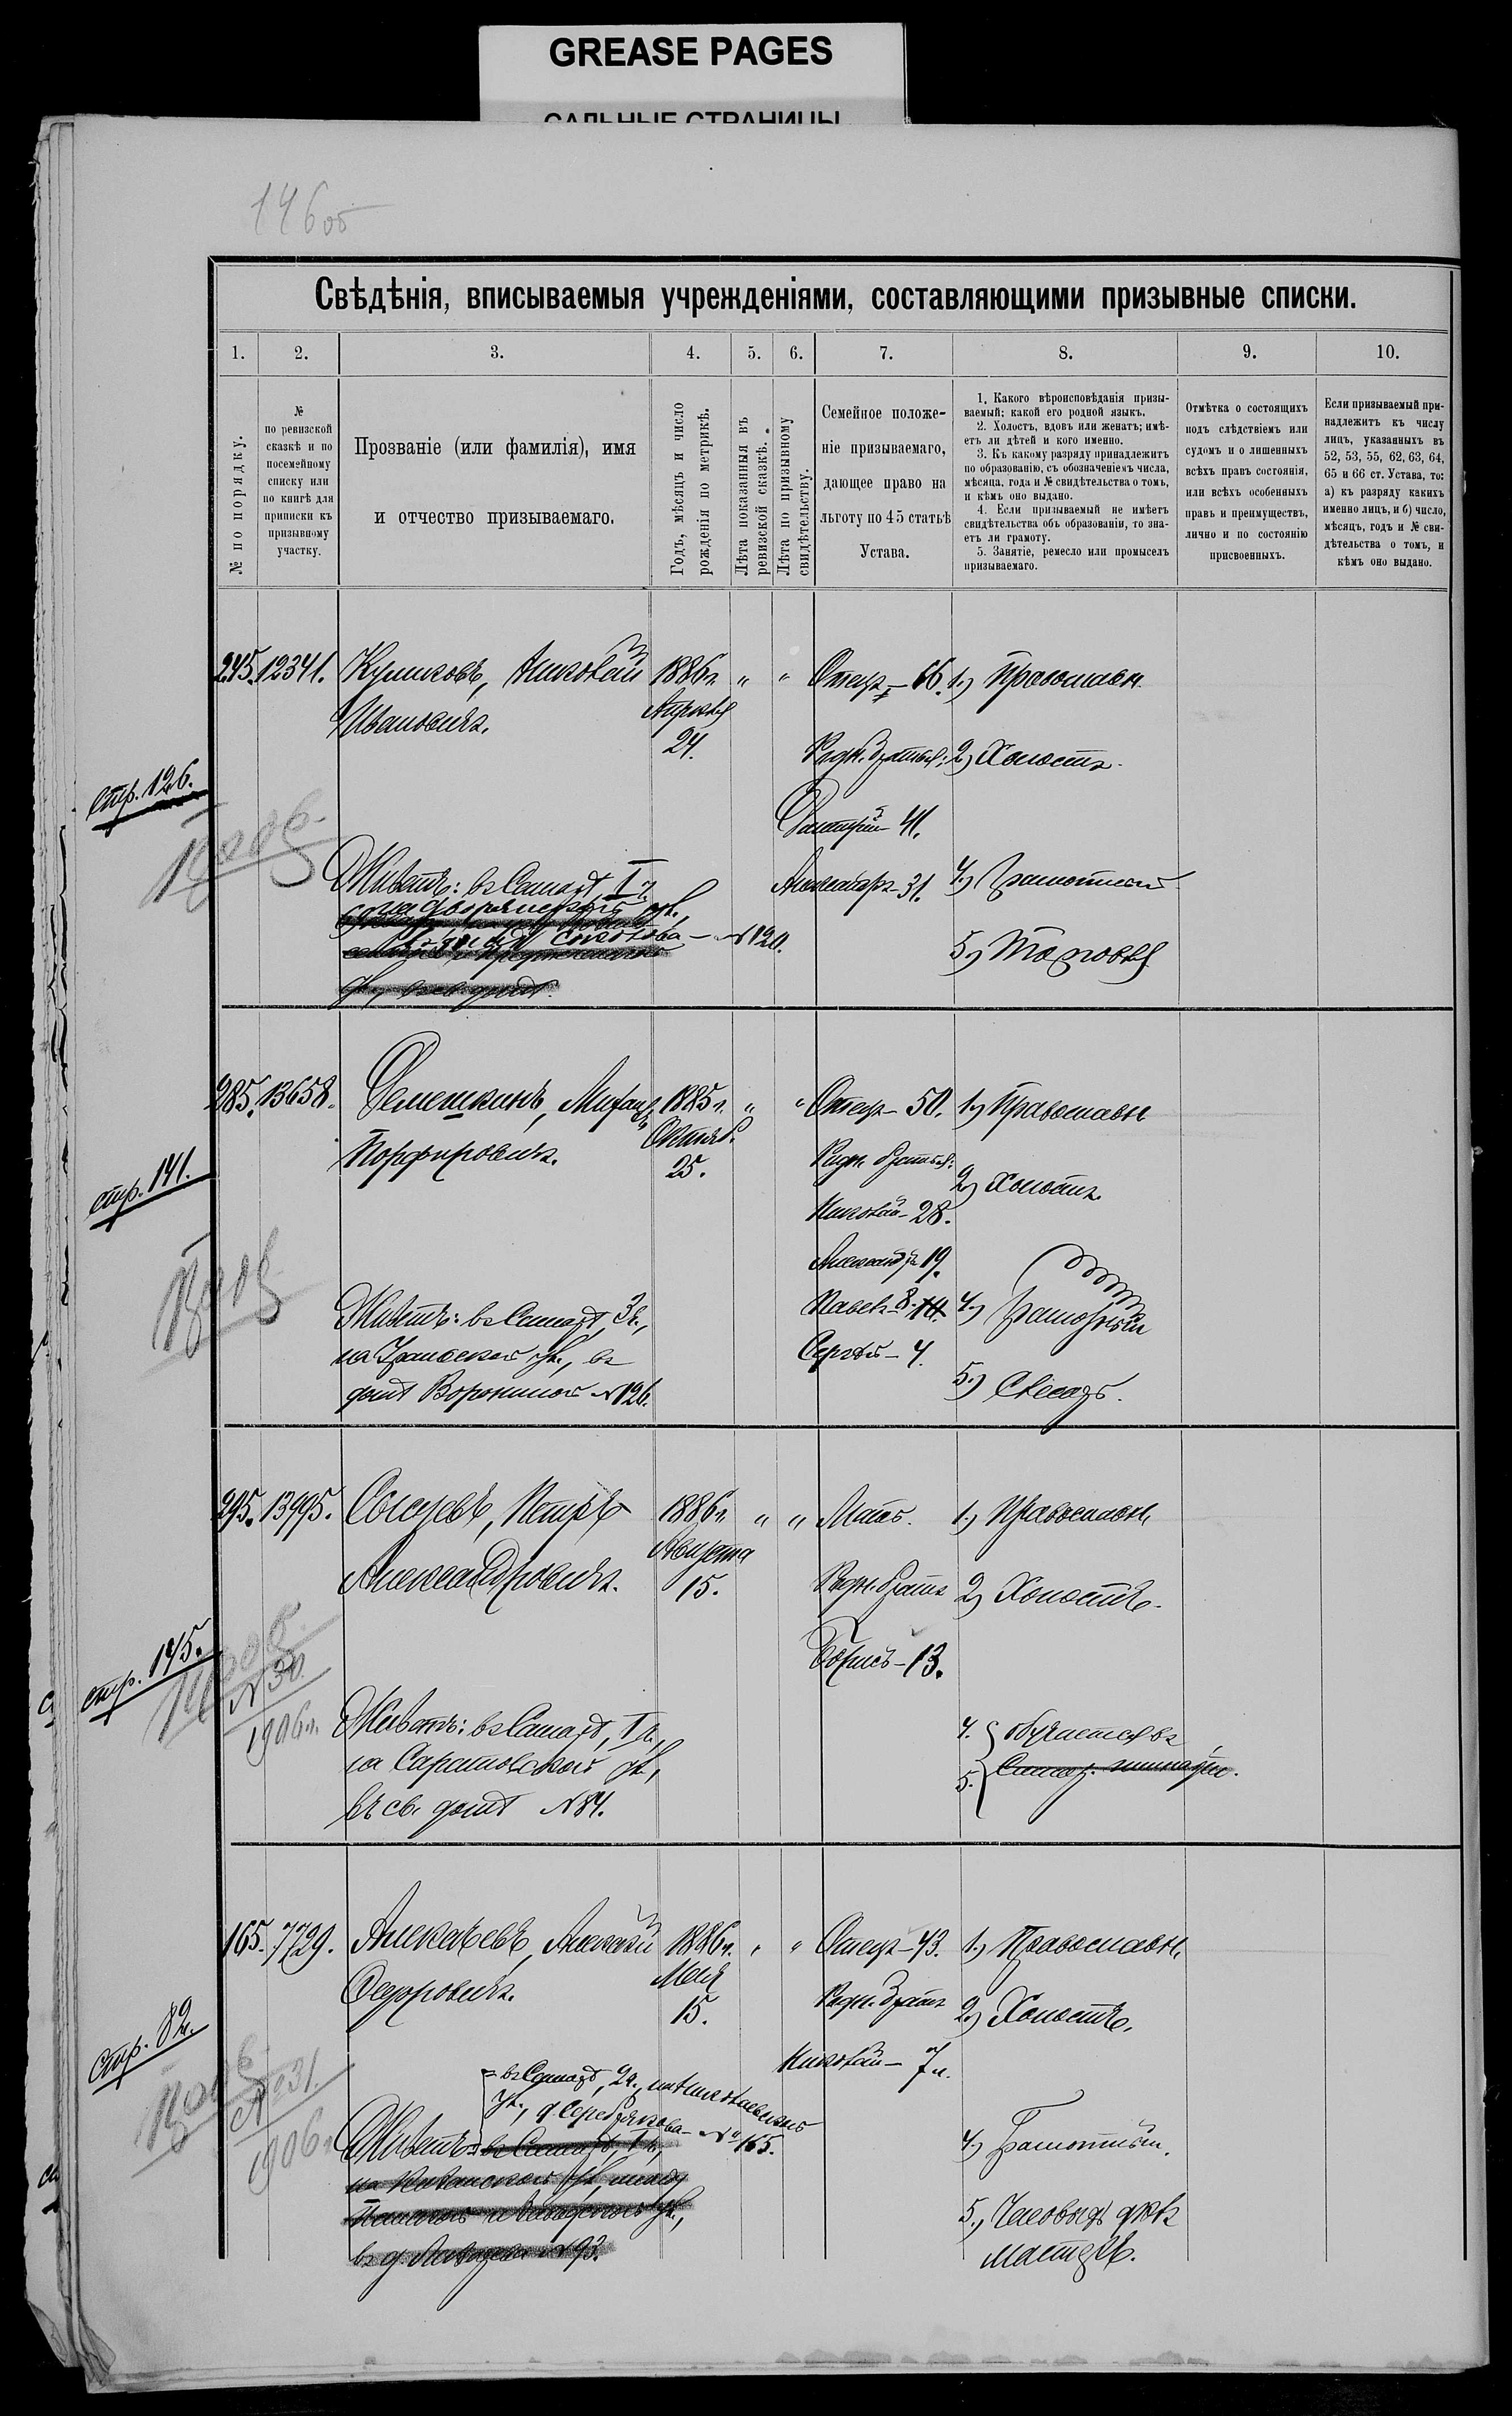 GREASE PAGES
САЛЬНЫЕ СТРАНИЦЫ
146об
Свѣдѣнія, вписываемыя учрежденіями, составляющими призывные списки.
1. 2. 3. 4. 5. 6. 7. 8. 9. 10.
№ по порядку.
№
по ревизской
сказкѣ и по
посемейному
списку или
по книгѣ для
приписки къ
призывному
участку.
Прозваніе (или фамилія), имя
и отчество призываемаго.
Годъ, мѣсяцъ и число
рожденія по метрикѣ.
Лѣта показанныя въ
ревизской сказкѣ.
Лѣта по призывному
свидѣтельству.
Семейное положе-
ніе призываемаго,
дающее право на
льготу по 45 статьѣ
Устава.
1. Какого вѣроисповѣданія призы-
ваемый; какой его родной языкъ.
2. Холостъ, вдовъ или женатъ; имѣ-
етъ ли дѣтей и кого именно.
3. Къ какому разряду принадлежитъ
по образованію, съ обозначеніемъ числа,
мѣсяца, года и № свидѣтельства о томъ,
и кѣмъ оно выдано.
4. Если призываемый не имѣетъ
свидѣтельства объ образованіи, то зна-
етъ ли грамоту.
5. Занятіе, ремесло или промыселъ
призываемаго.
Отмѣтка о состоящихъ
подъ слѣдствіемъ или
судомъ и о лишенныхъ
всѣхъ правъ состоянія,
или всѣхъ особенныхъ
правъ и преимуществъ,
лично и по состоянію
присвоенныхъ.
Если призываемый при-
надлежитъ къ числу
лицъ, указанныхъ въ
52, 53, 55, 62, 63, 64,
65 и 66 ст. Устава, то:
а) къ разряду какихъ
именно лицъ, и б) число,
мѣсяцъ, годъ и № сви-
дѣтельства о томъ, и
кѣмъ оно выдано.
245. 12341. Куликовъ, Николай 1886г. " " Отецъ - 66. 1.) Православн.
Ивановичъ. Апрѣля
24.
Родн. братья: 2.) Холостъ.
стр. 126.
Дмитрій - 41.
Живетъ: въ Самарѣ, I ч. Александръ - 31. 4.) Грамотный
на Дворянской ул.,
Соколова - №120.
5.) Торговля
285. 13658. Делешкинъ, Михаилъ 1885г. " " Отецъ - 50. 1.) Православн
Порфировичъ. Октяб.
25.
Родн. братья:
2.) Холостъ
стр. 141.
Николай - 28.
Александръ 19.
Живетъ: въ Самарѣ, 3ч., Павелъ - 8. 4.) Грамотный
на Уральской ул., въ Сергѣй - 4.
домѣ Воронина №126. 5.) Слесарь.
295. 13995. Соколовъ, Петръ 1886г. " " Мать. 1.) Православн.
Александровичъ. Августа
15.
Родн. братъ 2.) Холостъ.
Борисъ - 13.
стр. 145.
№30
1906г.
Живетъ: въ Самарѣ, I ч., 4. обучается въ
на Саратовской ул., 5. Самар. гимназіи.
въ св. домѣ №84.
165. 7729. Алексѣевъ, Алексѣй 1886г. " " Отецъ - 43. 1.) Православн.
Федоровичъ. Мая
15.
Родн. братъ 2.) Холостъ.
Николай - 7л.
Стр. 82.
№31.
1906г.
въ Самарѣ, 2ч.,
ул., д Серебрякова - №165.
Живетъ: въ Самарѣ, I ч., 4.) Грамотный.
на Казанской ул. между
5.) Часовыхъ дѣлъ
мастеръ.
№93.